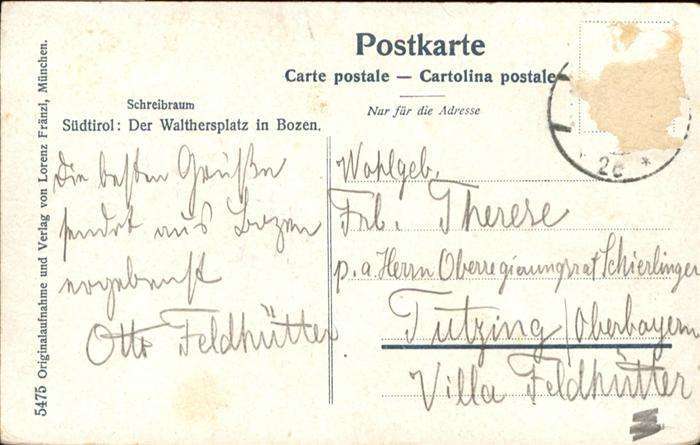 Postkarte
Carte postale — Cartolina postale
Nur für die Adresse
Schreibraum
Südtirol: Der Walthersplatz in Bozen.
5475 Originalaufnahme und Verlag von Lorenz Fränzl, München.
Die besten Grüße
sendet aus Bozen
ergebenst
Otto Feldhütter
Wohlgeb.
Frl. Therese
p. a Herrn Oberregierungsrat Schierlinger
Tutzing/Oberbayern
Villa Feldhütter
26 *